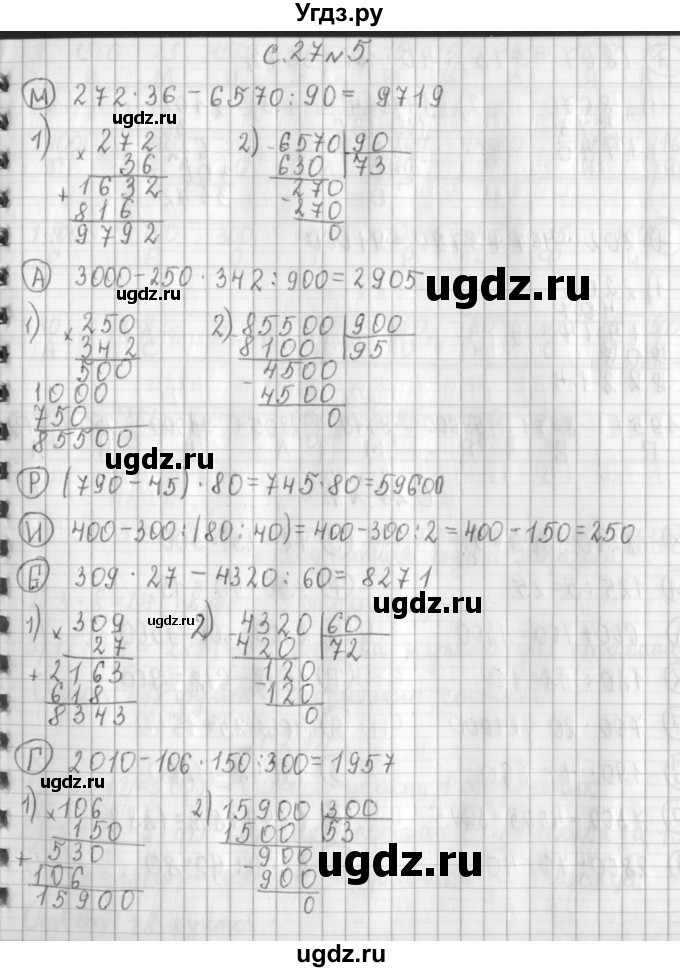 Угдз.ру
с. 27 № 5.
М 272 · 36 - 6570 : 90 = 9719
ugdz.ru
1) × 272 2) - 6570 | 90
36 630 | 73
+ 1632 270
816 - 270
9792 0
А 3000 - 250 · 342 : 900 = 2905
ugdz.ru ugdz.ru
1) × 250 2) - 85500 | 900
342 8100 | 95
500 4500
1000 - 4500
750 0
85500
ugdz.ru
Р (790 - 45) · 80 = 745 · 80 = 59600
И 400 - 300 : (80 : 40) = 400 - 300 : 2 = 400 - 150 = 250
Е 309 · 27 - 4320 : 60 = 8271
ugdz.ru ugdz.ru
1) × 309 2) - 4320 | 60
27 420 | 72
+ 2163 120
618 - 120
8343 0
Г 2010 - 106 · 150 : 300 = 1957
ugdz.ru
1) × 106 2) - 15900 | 300
150 1500 | 53
+ 530 900
106 - 900
15900 0
ugdz.ru
ugdz.ru